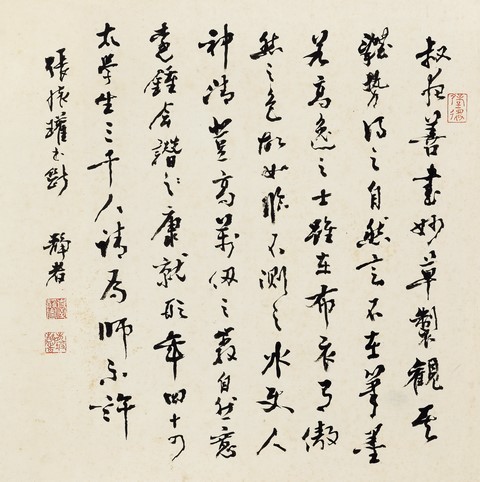 叔夜善書妙草製觀其
體勢得之自然言不在筆墨
若高逸之士雖在布衣有傲
然之色故知臨不測之水使人
神清登高萬仞之巖自然意
遠鍾會譖之康就刑年四十
太學生三千人請為師不許
張懷瓘書斷 靜者